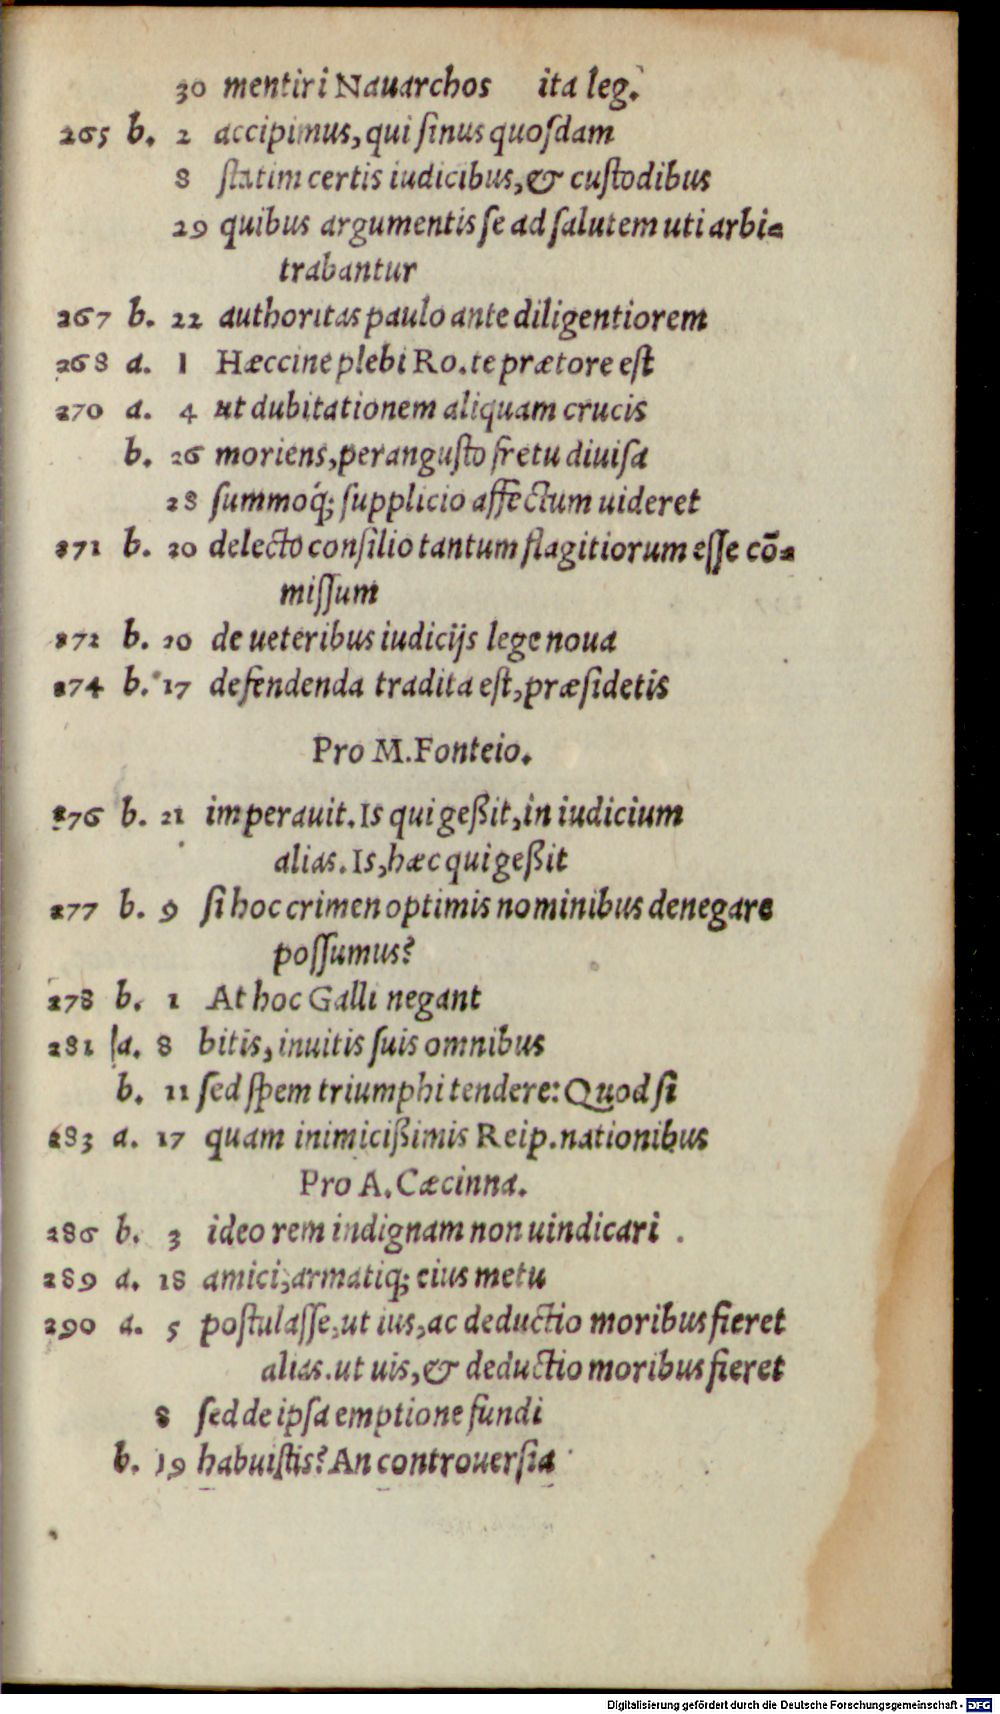 30 mentiri Nauarchos ita leg.
265 b. 2 accipimus, qui ſinus quoſdam
8 ſtatim certis iudicibus, & cuſtodibus
29 quibus argumentis ſe ad ſalutem uti arbi-
trabantur
267 b. 22 authoritas paulo ante diligentiorem
268 a. 1 Hæccine plebi Ro. te prætore eſt
270 a. 4 ut dubitationem aliquam crucis
b. 26 moriens, peranguſto fretu diuiſa
28 ſummoq́; ſupplicio affectum uideret
271 b. 20 delecto conſilio tantum flagitiorum eſſe cō-
miſſum
272 b. 20 de ueteribus iudicijs lege noua
274 b. 17 defendenda tradita eſt, præſidetis
Pro M. Fonteio.
276 b. 21 imperauit. Is qui geßit, in iudicium
alias. Is, hæc qui geßit
277 b. 9 ſi hoc crimen optimis nominibus denegare
poſſumus?
278 b. 1 At hoc Galli negant
281 a. 8 bitis, inuitis ſuis omnibus
b. 11 ſed ſpem triumphi tendere: Quod ſi
283 a. 17 quam inimicißimis Reip. nationibus
Pro A. Cæcinna.
286 b. 3 ideo rem indignam non uindicari .
289 a. 18 amici, armatiq; eius metu
290 a. 5 poſtulaſſe, ut ius, ac deductio moribus fieret
alias. ut uis, & deductio moribus fieret
8 ſed de ipſa emptione fundi
b. 19 habuiſtis? An controuerſia
Digitalisierung gefördert durch die Deutsche Forschungsgemeinschaft - DFG